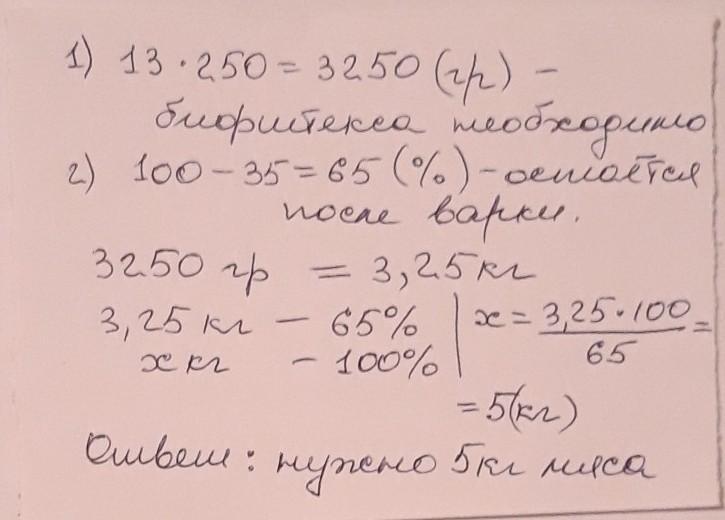 1) 13 · 250 = 3250 (гр) –
бифштекса необходимо
2) 100 – 35 = 65 (%) – остаётся
после варки.
3250 гр = 3,25 кг
3,25 кг – 65% | x = 3,25 · 100 / 65 =
x кг – 100%
= 5 (кг)
Ответ : нужно 5 кг мяса